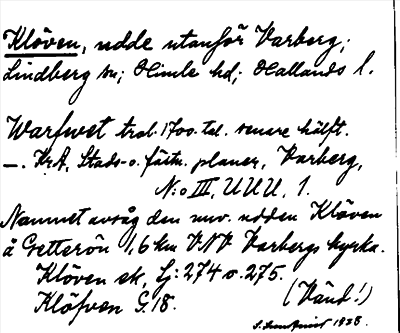 Klöven, udde utanför Varberg;
Lindberg sn; Himle hd; Hallands l.
Warfwet trol. 1700-tal. senare hälft.
—. KrA, Stads- o. fästn. planer, Varberg,
N:o III, UUU, 1.
Namnet avsåg den nuv. udden Klöven
å Getterön 1,6 km VNV Varbergs kyrka.
Klöven ek, Lj: 274 o. 275.
Klöfven G. 18.
(Vänd!)
1938.